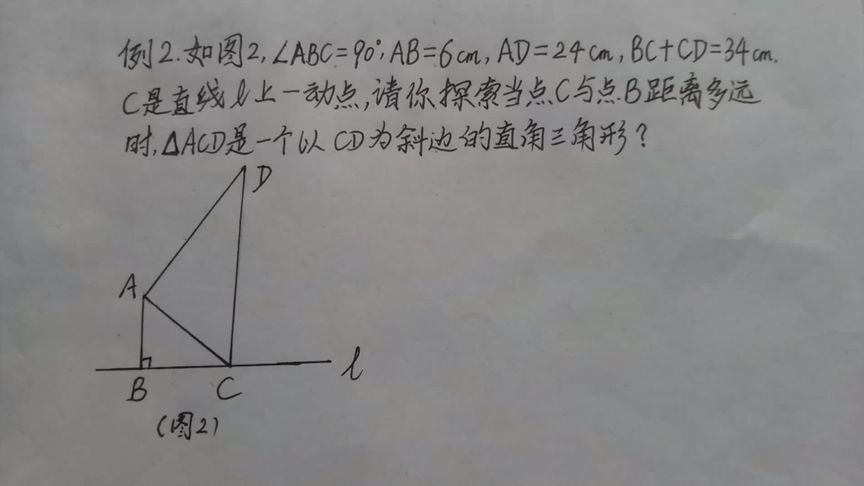 例2.如图2,∠ABC=90°,AB=6cm,AD=24cm,BC+CD=34cm.
C是直线l上一动点,请你探索当点C与点B距离多远
时,△ACD是一个以CD为斜边的直角三角形?
D
A
B
C
l
(图2)